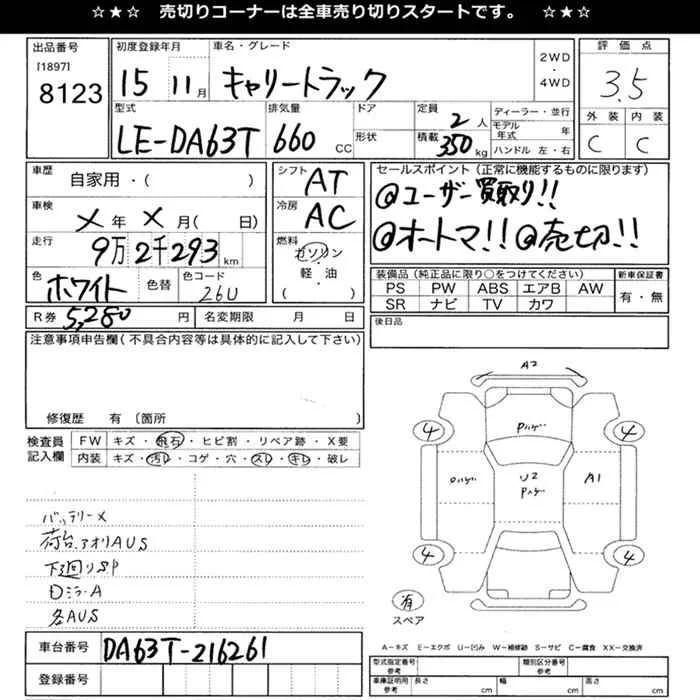 ☆★☆ 売切りコーナーは全車売り切りスタートです。 ☆★☆
出品番号
[1897]
8123
初度登録年月
15 11月
車名・グレード
キャリートラック
2WD
・
4WD
評価点
3.5
外装 内装
C C
型式
LE-DA63T
排気量
660 CC
ドア
形状
定員 2人
積載 350kg
ディーラー・並行
モデル年式 年
ハンドル 左・右
車歴 自家用・( )
車検 メ年メ月( 日)
走行 9万2千293km
色 ホワイト 色替 色コード 26U
シフト AT
冷房 AC
燃料 ガソリン
・
軽油
・
( )
セールスポイント(正常に機能するものに限ります)
@ユーザー買取り!!
@オートマ!! @売切!!
装備品(純正品に限り○をつけてください) 新車保証書
PS PW ABS エアB AW
SR ナビ TV カワ
有・無
R券 5,280円 名変期限 月 日
後日品
注意事項申告欄(不具合内容等は具体的に記入して下さい)
修復歴 有 (箇所 )
検査員記入欄
FW キズ・飛石・ヒビ割・リペア跡・X要
内装 キズ・汚レ・コゲ・穴・スレ・キレ・破レ
バッテリーX
荷台.アオリAUS
下廻りSP
Dミラ-A
各AUS
A2
4 4
Pハゲ
Pハゲ U2 Pハゲ A1
4 4
有
スペア
車台番号 DA63T-216261
登録番号
A−キズ E−エクボ U−凹み W−補修跡 S−サビ C−腐食 XX−交換済
型式指定番号 参考 類別区分番号 参考
車庫証明用 参考 長さ cm 幅 cm 高さ cm